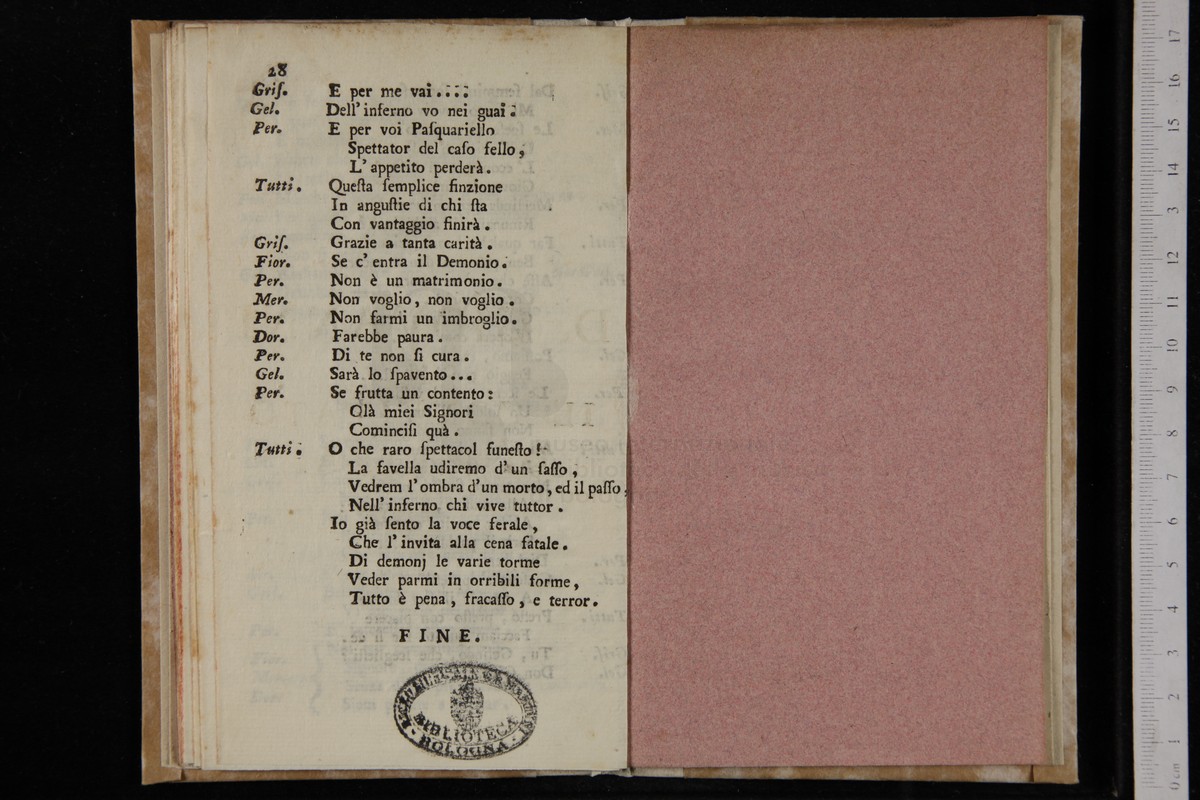 28
Griſ. E per me vai....
Gel. Dell' inferno vo nei guai.
Per. E per voi Paſquariello
Spettator del caſo fello,
L' appetito perderà.
Tutti. Queſta ſemplice finzione
In anguſtie di chi ſta
Con vantaggio finirà.
Griſ. Grazie a tanta carità.
Fior. Se c' entra il Demonio.
Per. Non è un matrimonio.
Mer. Non voglio, non voglio.
Per. Non farmi un imbroglio.
Dor. Farebbe paura.
Per. Di te non ſi cura.
Gel. Sarà lo ſpavento...
Per. Se frutta un contento:
Olà miei Signori
Comincisi quà.
Tutti. O che raro ſpettacol funeſto!
La favella udiremo d' un ſaſſo,
Vedrem l' ombra d' un morto, ed il paſſo,
Nell' inferno chi vive tuttor.
Io già ſento la voce ferale,
Che l' invita alla cena fatale.
Di demonj le varie torme
Veder parmi in orribili forme,
Tutto è pena, fracaſſo, e terror.
FINE.
BIBLIOTECA
BOLOGNA
17
16
15
14
3
12
11
10
9
8
7
6
5
4
3
2
1
0 cm